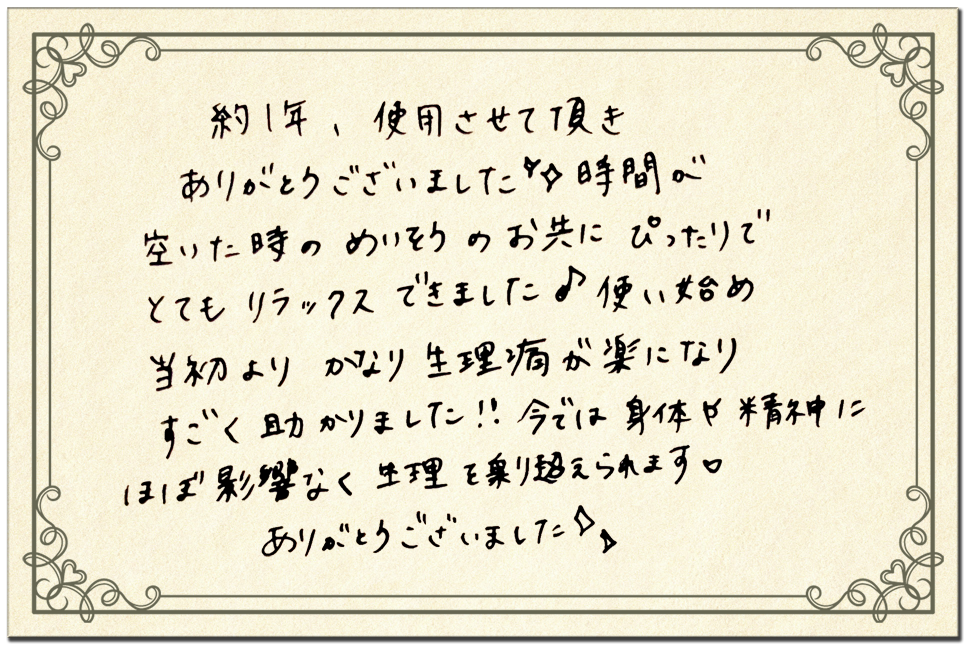 約1年、使用させて頂き
ありがとうございました✧✧時間が
空いた時の めいそうのお共に ぴったりで
とても リラックス できました♪ 使い始め
当初より かなり 生理痛が楽になり
すごく 助かりました!! 今では 身体や 精神に
ほぼ影響なく 生理を乗り超えられます♡
ありがとうございました✧✧